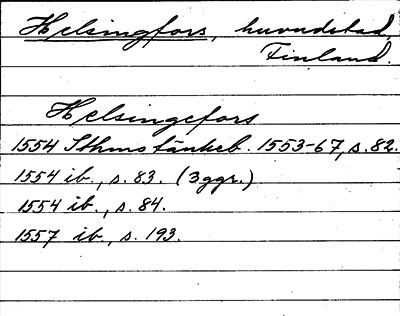 Helsingfors, huvudstad,
Finland.
Helsingefors
1554 Sthms tänkeb. 1553-67, s. 82.
1554 ib., s. 83. (3ggr.)
1554 ib., s. 84.
1557 ib., s. 193.